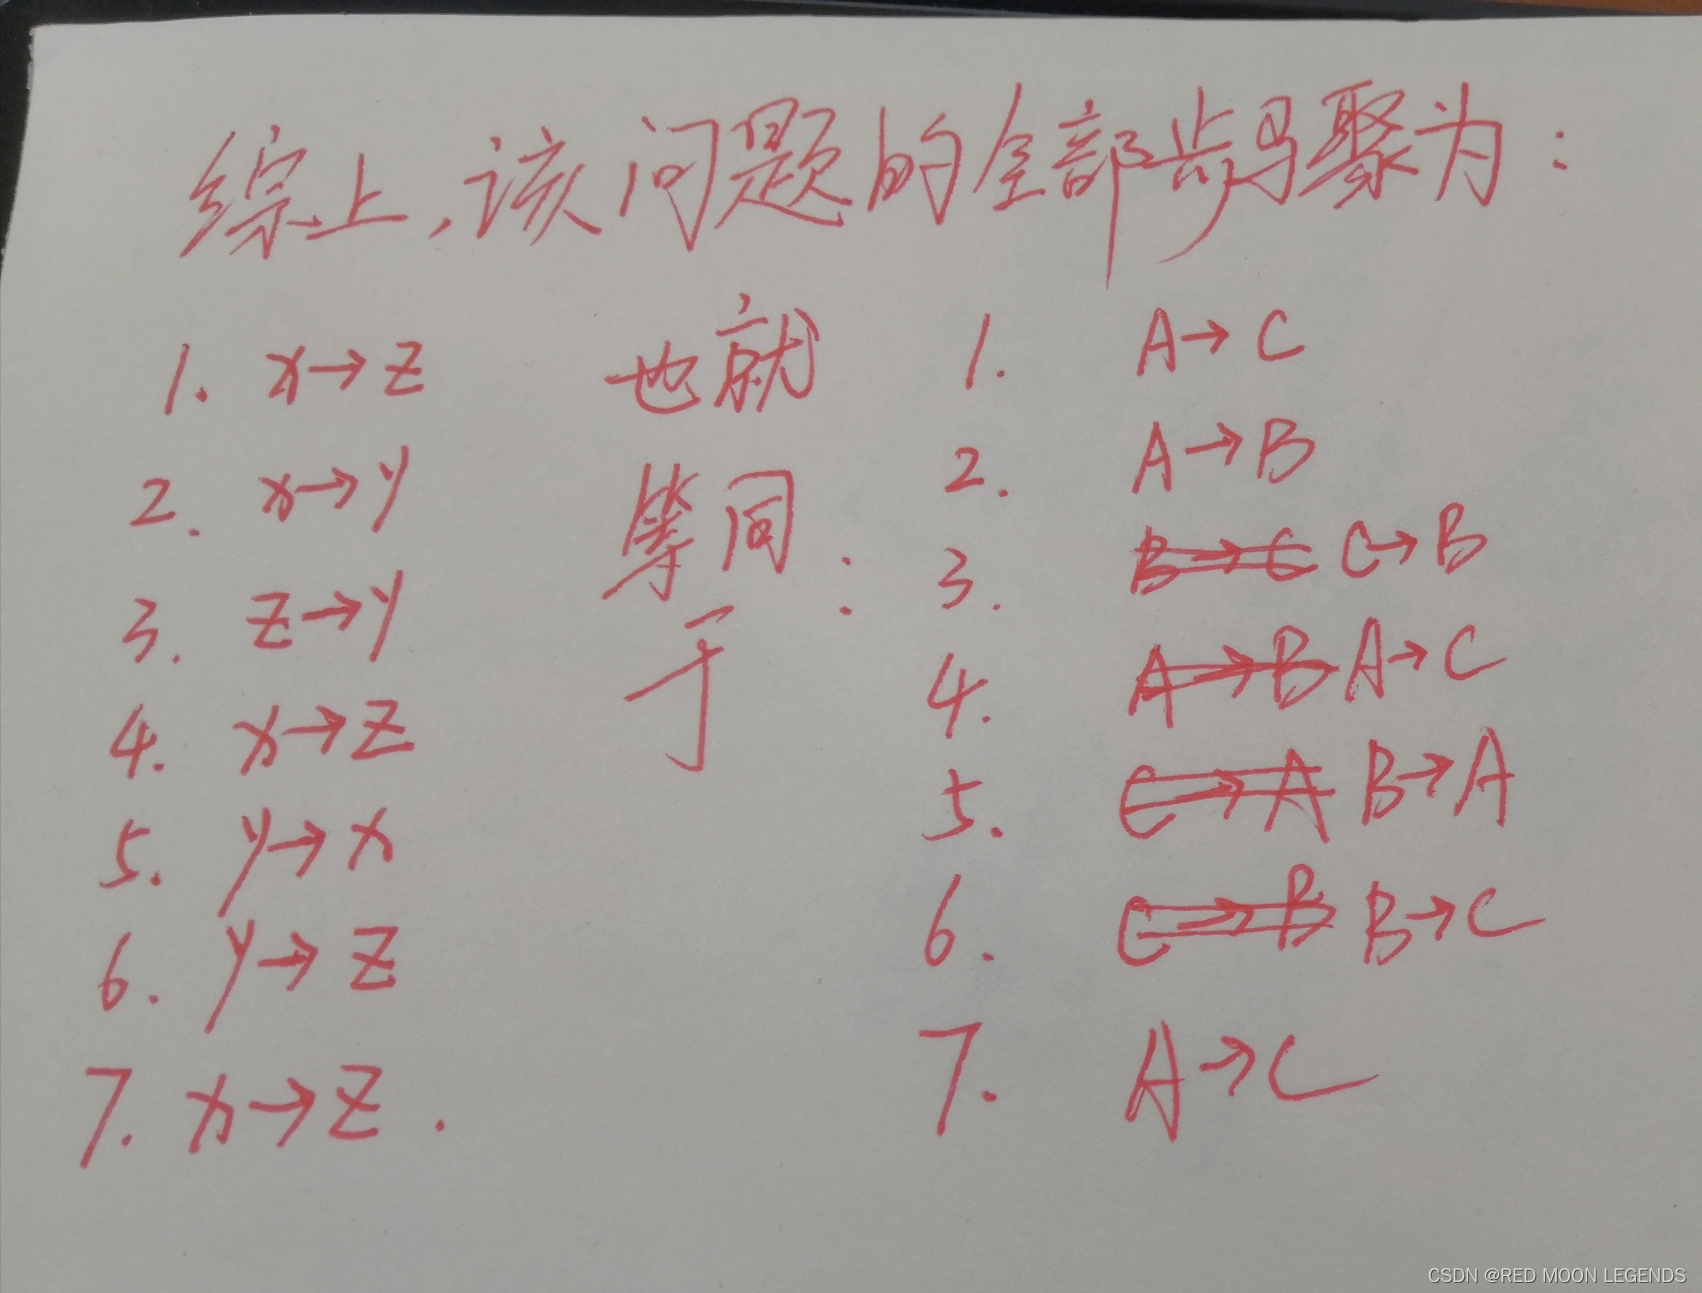 综上,该问题的全部步骤为:
1. x→z
2. x→y
3. z→y
4. x→z
5. y→x
6. y→z
7. x→z.
也就
等同
于:
1. A→C
2. A→B
3. B→C C→B
4. A→B A→C
5. C→A B→A
6. C→B B→C
7. A→C
CSDN @RED MOON LEGENDS